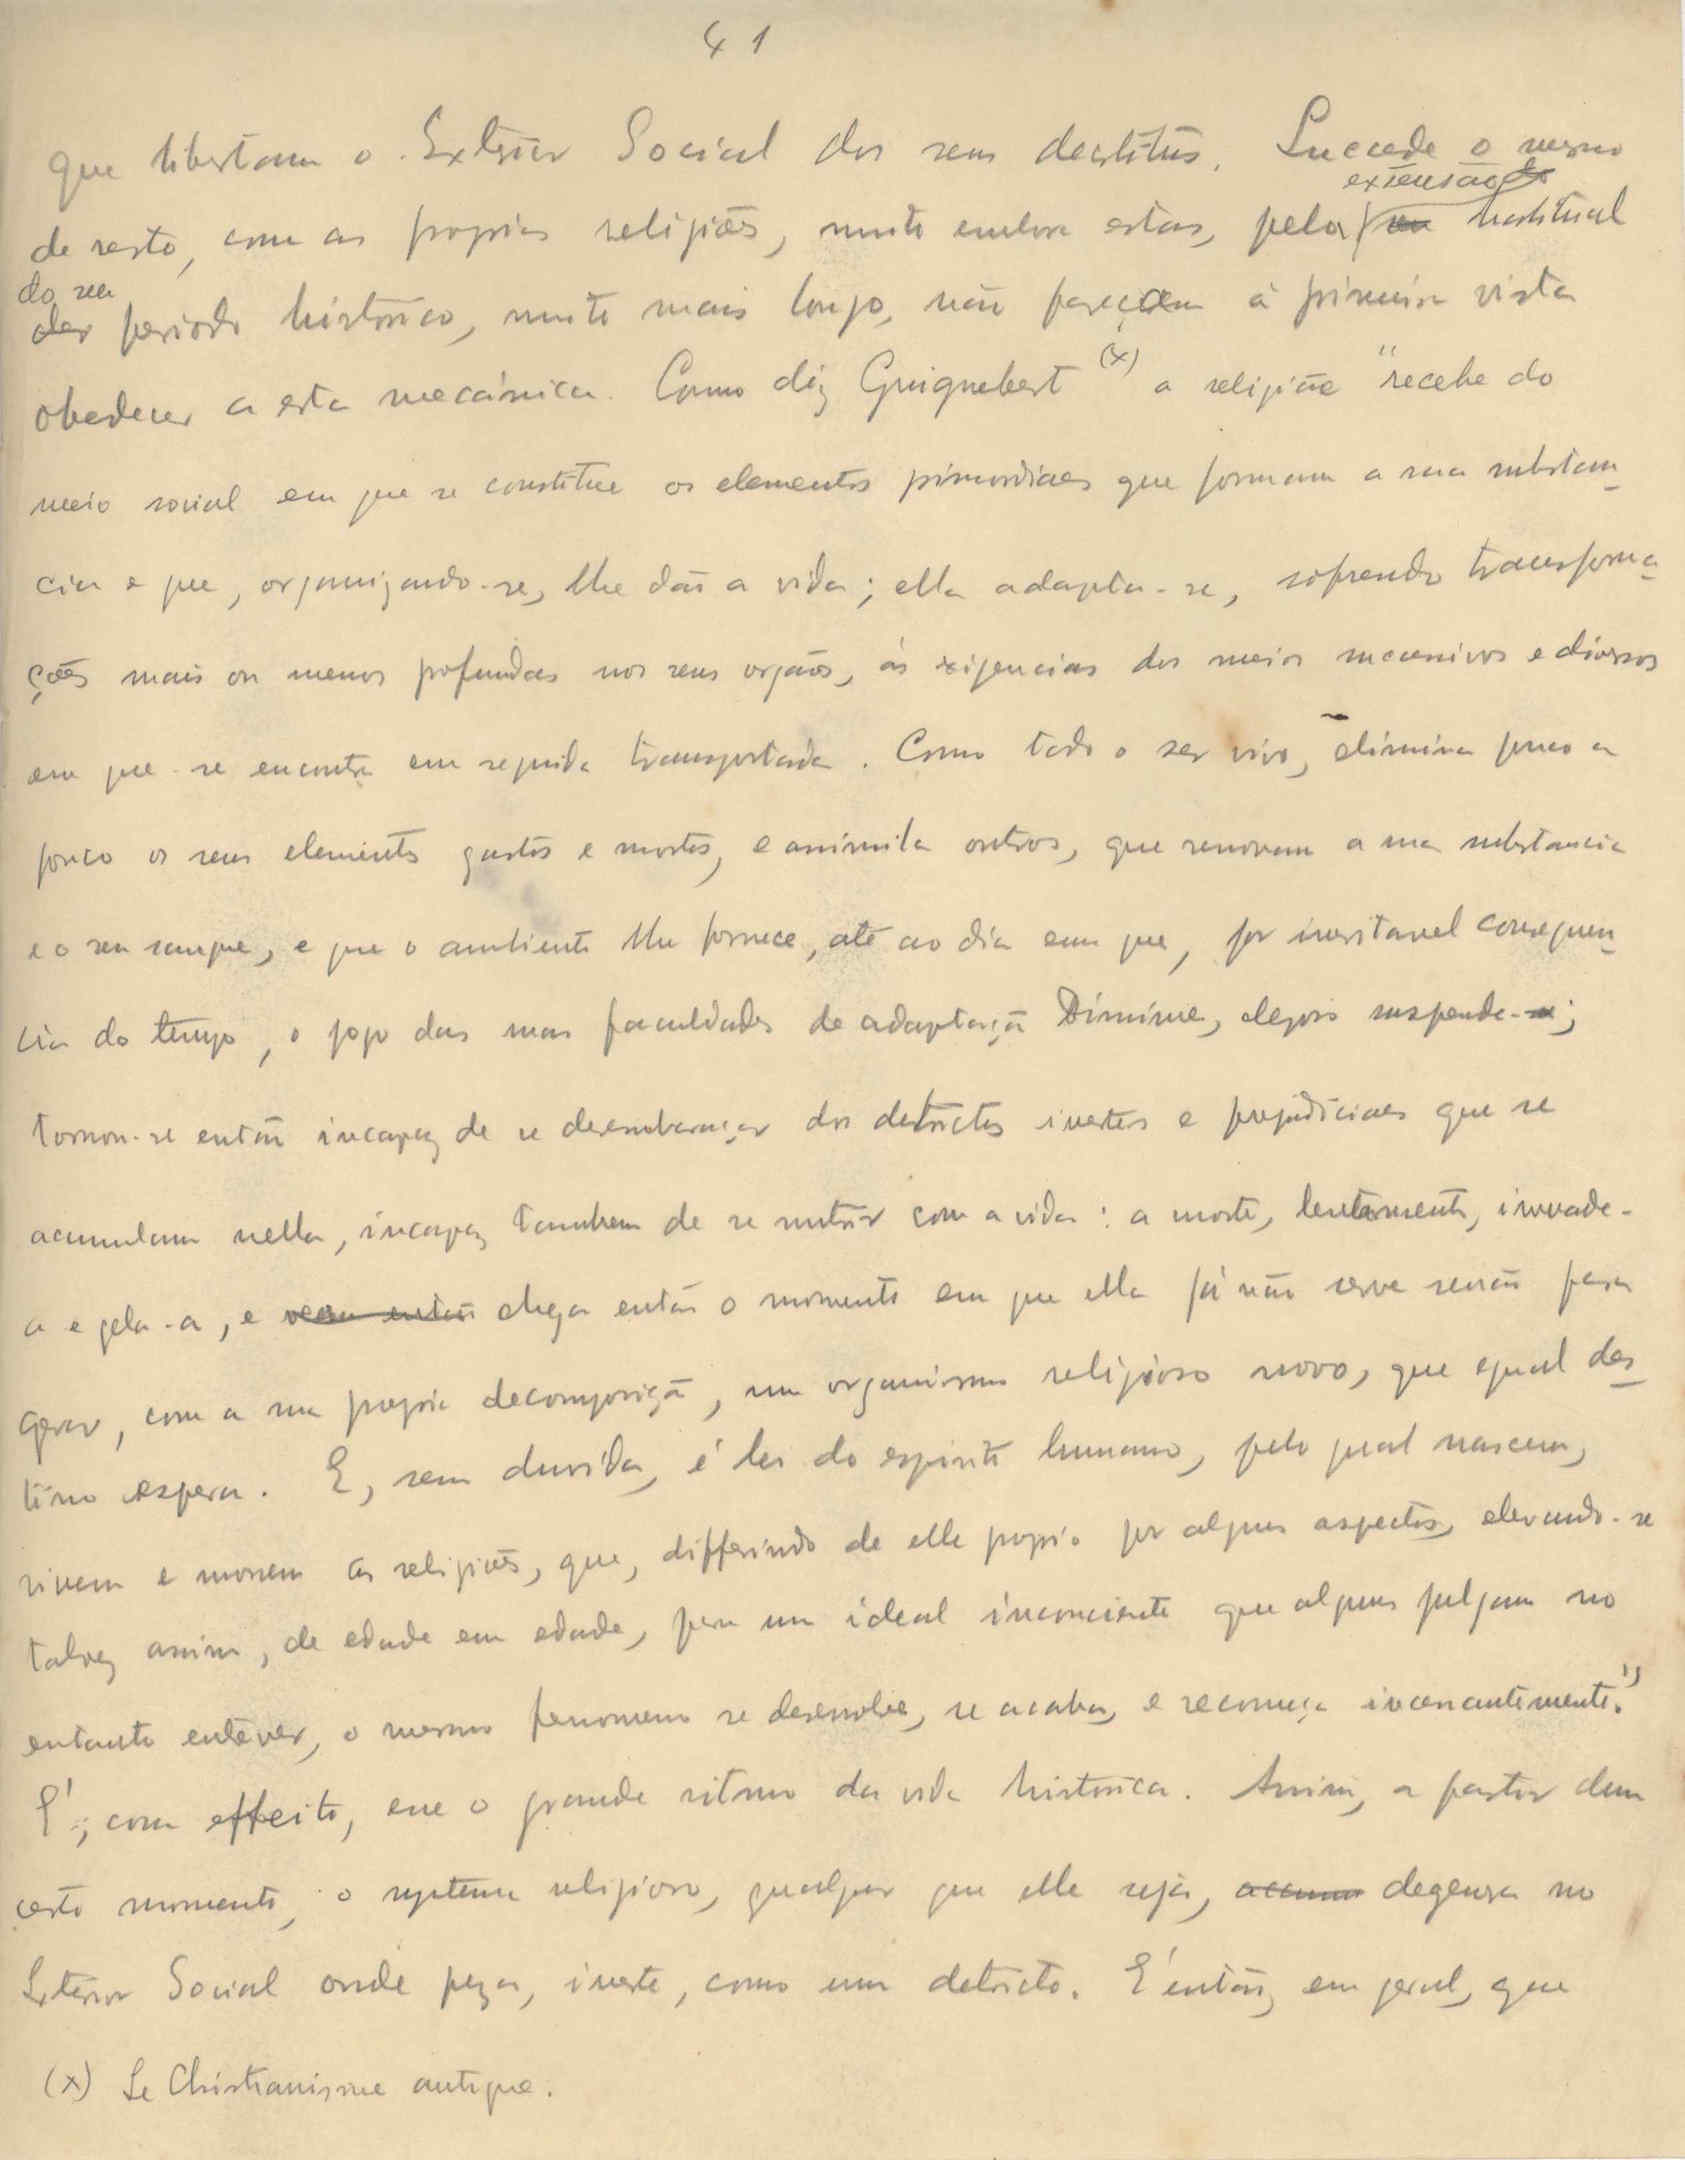 41
que libertam o Exterior Social dos seus detritus. Succede o mesmo
extensão
de resto, com as proprias religiões, muito embora estas, pela habitual
do seu
periodo historico, muito mais longo, não pareçam á primeira vista
obedecer a esta mecánica. Como diz Guignebert (x) a religião "recebe do
meio social em que se constitue os elementos primordiaes que formam a sua substan-
cia e que, organizando-se, lhe dão a vida; ella adapta-se, sofrendo transforma-
ções mais ou menos profundas nos seus orgãos, ás exigencias dos meios sucessivos e diversos
em que se encontra em seguida transportada. Como todo o ser vivo, elimina pouco a
pouco os seus elementos gastos e mortos, e assimila outros, que renovam a sua substancia
e o seu sangue, e que o ambiente lhe fornece, até ao dia em que, por inevitavel consequen-
cia do tempo, o jogo das suas faculdades de adaptação diminue, depois suspende-se;
tornou-se então incapaz de se desembaraçar dos detrictos inertes e prejudiciaes que se
acumulam nella, incapaz tambem de se nutrir com a vida: a morte, lentamente, invade-
a e gela-a, e vem então chega então o momento em que ella já não serve senão para
gerar, com a sua propria decomposição, um organismo religioso novo, que egual des-
tino espera. E, sem duvida, é lei do espirito humano, pelo qual nascem,
vivem e morrem as religiões, que, differindo de elle proprio por alguns aspectos, elevando-se
talvez assim, de edade em edade, para um ideal inconsciente que alguns julgam no
entanto entrever, o mesmo fenomeno se desenvolve, se acaba, e recomeça incessantemente."
É, com effeito, esse o grande ritmo da vida historica. Assim, a partir dum
certo momento, o systema religioso, qualquer que elle seja, degenera no
Exterior Social onde peza, inerte, como um detricto. É então, em geral, que
(x) Le Christianisme antique.